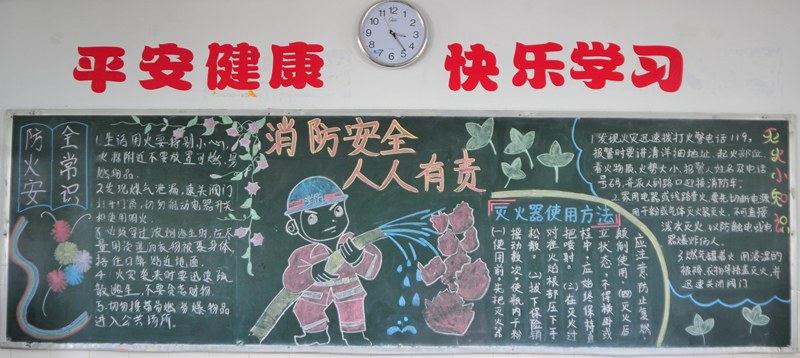 平安健康 快乐学习
防火安
全常识
1.生活用火要特别小心,
火源附近不要放置可燃、易
燃物品。
2.发现煤气泄漏,速关阀门
打开门窗,切勿触动电器开关
和使用明火。
3.必须穿过浓烟逃生时,应尽
量用浸湿的衣物披裹身体
捂住口鼻贴近地面。
4.火灾袭来时要迅速疏
散逃生,不要贪恋财物。
5.切勿携带易燃易爆物品
进入公共场所。
消防安全
人人有责
灭火器使用方法
(一)使用前,先把灭火器
摇动数次,使瓶内干粉
松散。(二)拔下保险销
对准火焰根部压下手
把喷射。(三)在灭火过
程中,应始终保持直
立状态,不得横卧或
颠倒使用(四)灭火后
应注意防止复燃。
灭火小知识
1.发现火灾迅速拨打火警电话119,
报警时要讲清详细地址、起火部位、
着火物质、火势大小、报警人姓名及电话
号码,并派人到路口迎接消防车。
2.家用电器或线路着火,要先切断电源,
用干粉或气体灭火器灭火,不可直接
泼水灭火,以防触电或电
器爆炸伤人。
3.燃气罐着火,用浸湿的
被褥、衣物等捂盖灭火,并
迅速关闭阀门